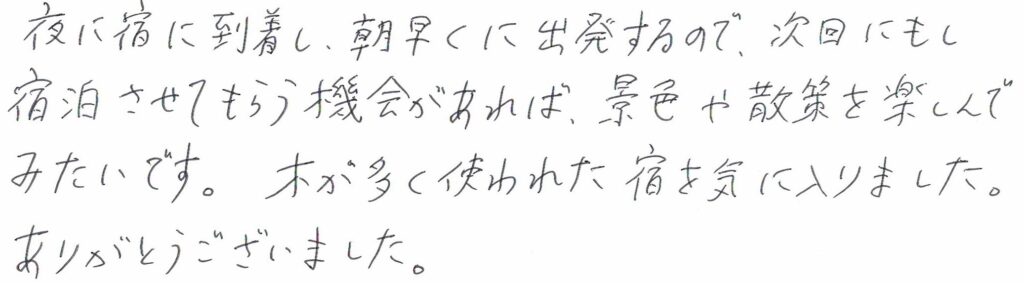 夜に宿に到着し、朝早くに出発するので、次回にもし
宿泊させてもらう機会があれば、景色や散策を楽しんで
みたいです。 木が多く使われた宿を気に入りました。
ありがとうございました。